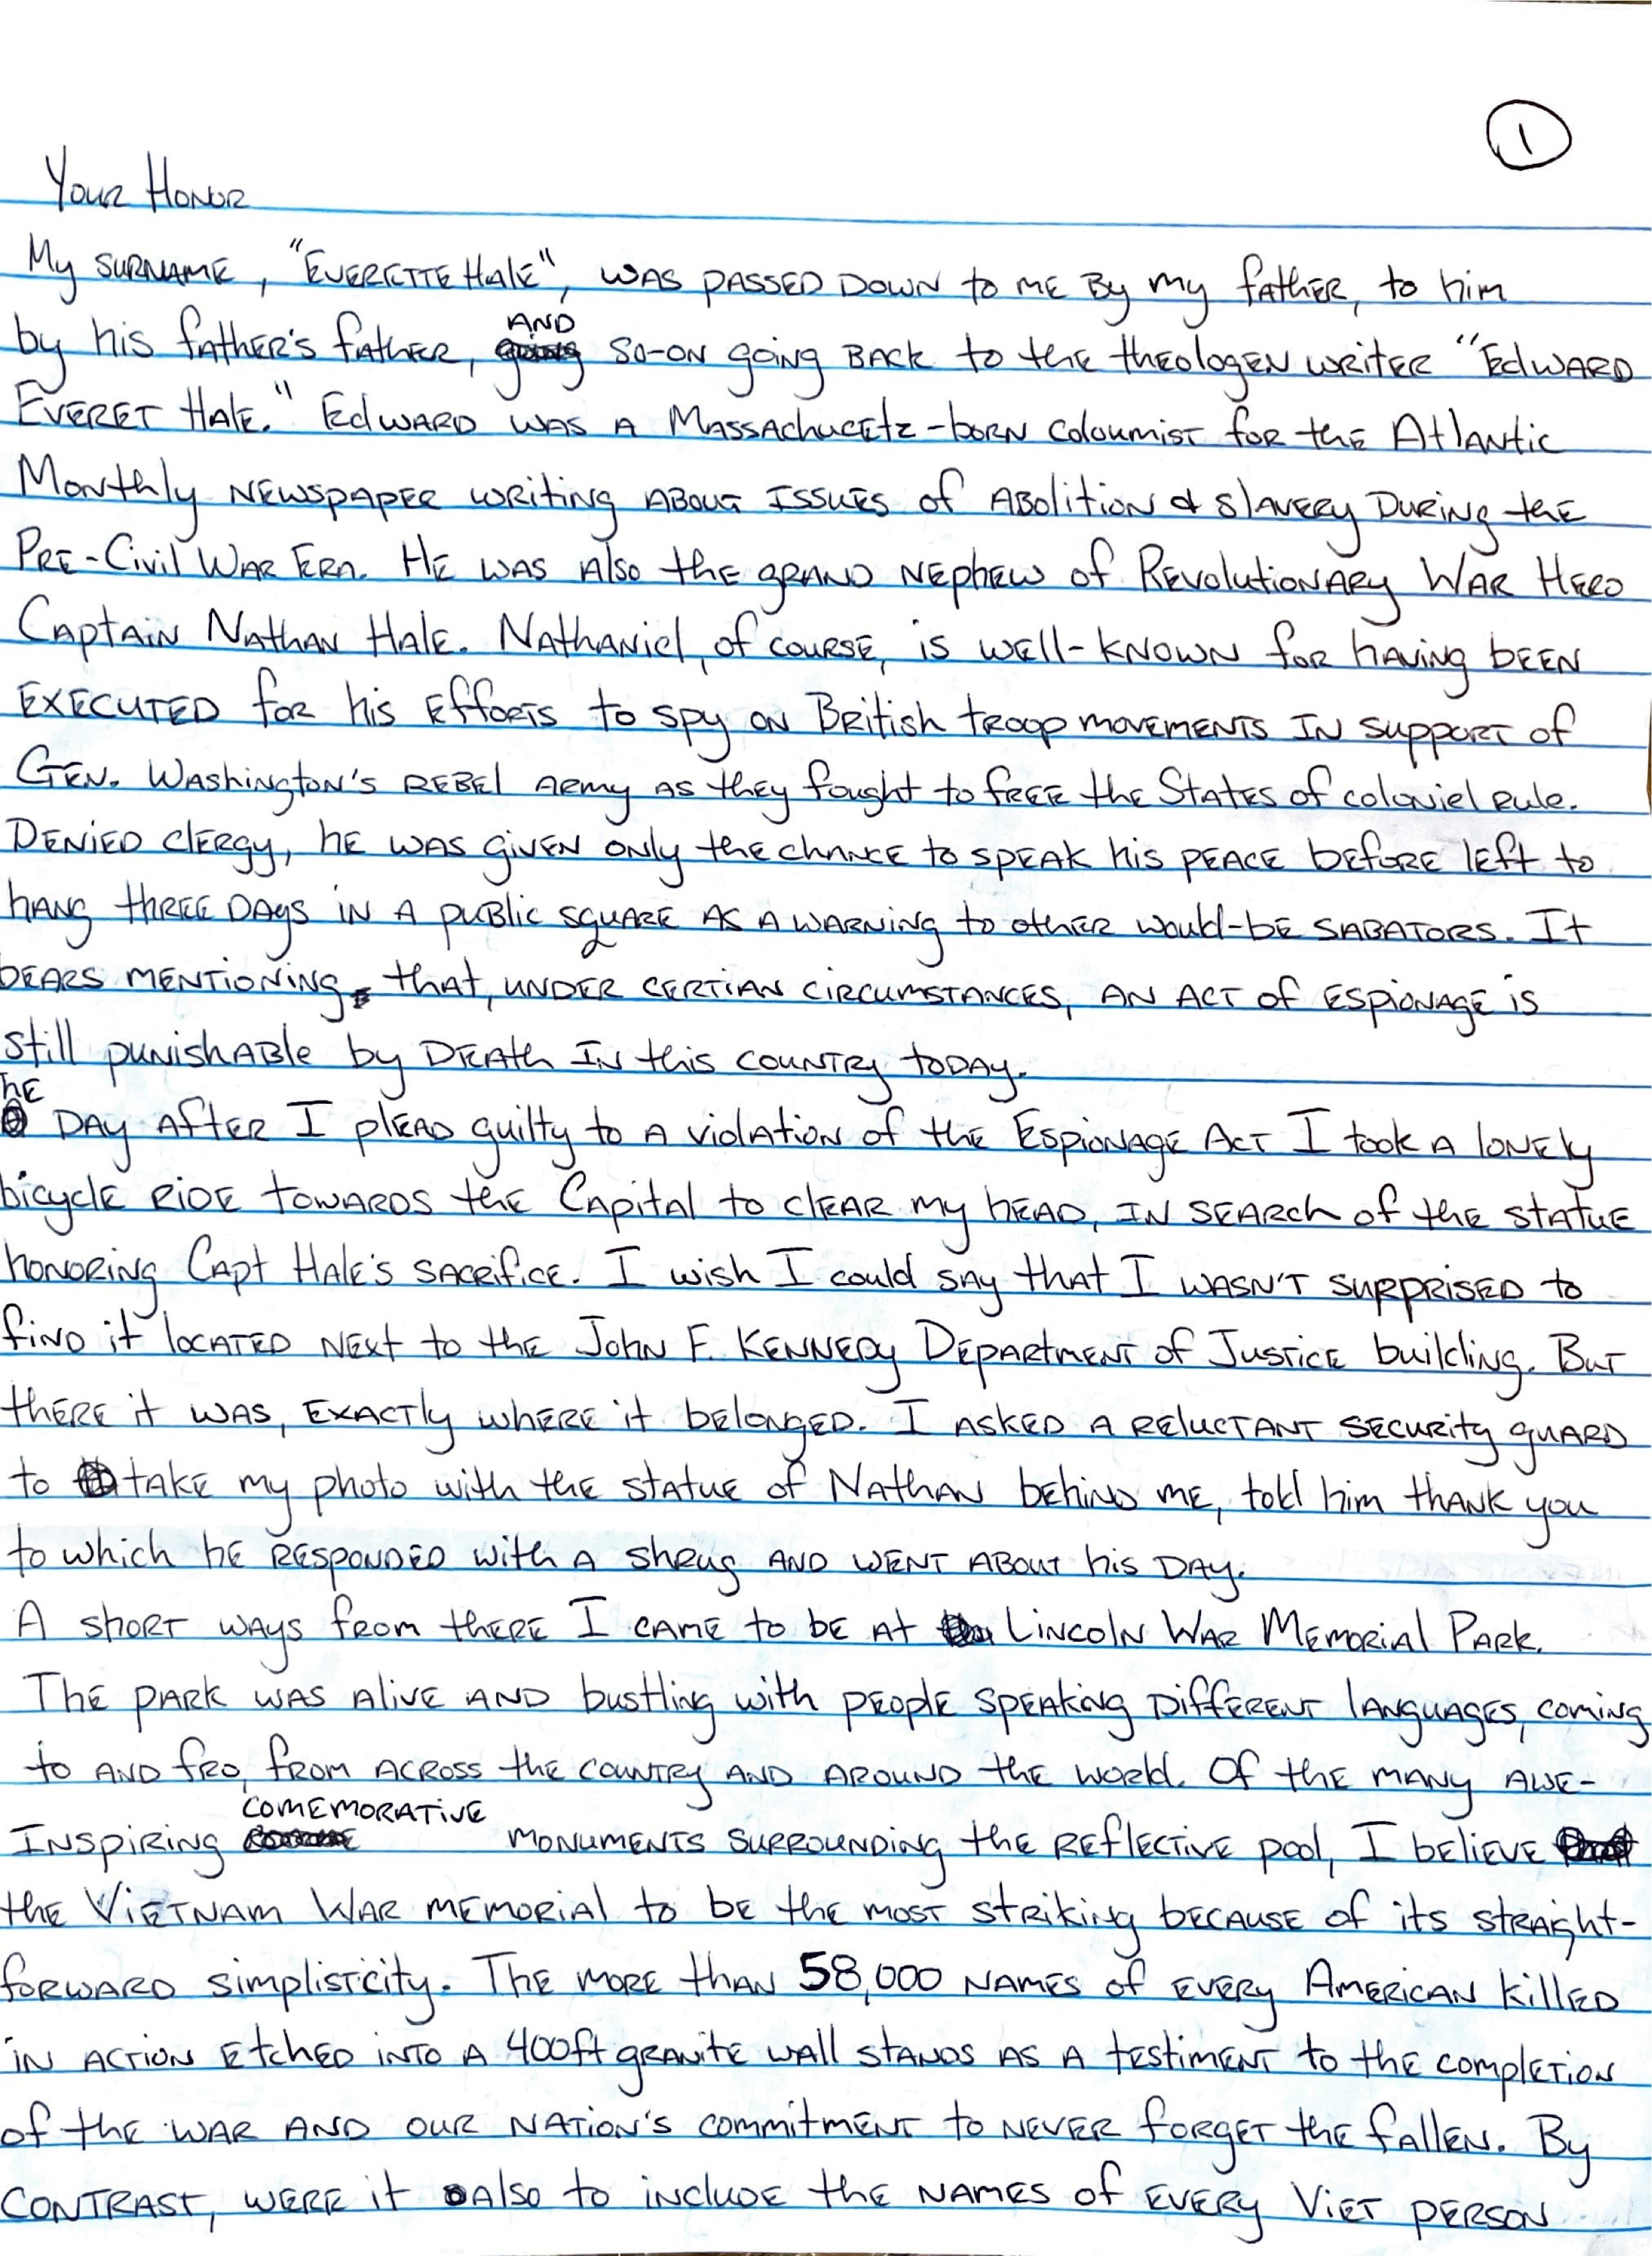 1
Your Honor
My surname, "Everette Hale", was passed down to me by my father, to him
by his father's father, and so-on going back to the theologen writer "Edward
Everet Hale." Edward was a Massachucetz-born coloumist for the Atlantic
Monthly newspaper writing about issues of abolition & slavery during the
Pre-Civil War Era. He was also the grand nephew of Revolutionary War Hero
Captain Nathan Hale. Nathaniel, of course, is well-known for having been
executed for his efforts to spy on British troop movements in support of
Gen. Washington's rebel army as they fought to free the States of coloniel rule.
Denied clergy, he was given only the chance to speak his peace before left to
hang three days in a public square as a warning to other would-be sabators. It
bears mentioning, that, under certian circumstances, an act of espionage is
still punishable by death in this country today.
he
Day after I plead guilty to a violation of the Espionage Act I took a lonely
bicycle ride towards the Capital to clear my head, in search of the statue
honoring Capt Hale's sacrifice. I wish I could say that I wasn't surprised to
find it located next to the John F. Kennedy Department of Justice building. But
there it was, exactly where it belonged. I asked a reluctant security guard
to take my photo with the statue of Nathan behind me, told him thank you
to which he responded with a shrug and went about his day.
A short ways from there I came to be at Lincoln War Memorial Park.
The park was alive and bustling with people speaking different languages, coming
to and fro, from across the country and around the world. Of the many awe-
inspiring comemorative monuments surrounding the reflective pool, I believe
the Vietnam War memorial to be the most striking because of its straight-
forward simplisticity. The more than 58,000 names of every American killed
in action etched into a 400ft granite wall stands as a testiment to the completion
of the war and our nation's commitment to never forget the fallen. By
contrast, were it also to include the names of every Viet person